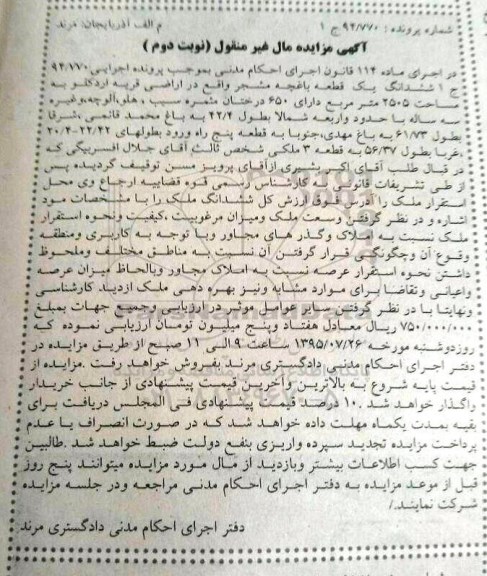 شماره پرونده : ۹۴/۷۷۰ ج ۱ م الف آذربایجان: مرند
آگهی مزایده مال غیر منقول (نوبت دوم )
در اجرای ماده ۱۱۴ قانون اجرای احکام مدنی بموجب پرونده اجرایی۹۴/۷۷۰
ج ۱ ششدانگ یک قطعه باغچه مشجر واقع در اراضی قریه اردکلو به
مساحت ۲۵۰۵ متر مربع دارای ۶۵۰ درختان مثمره سیب ، هلو،آلوچه،وغیره
سه ساله با حدود واربعه شمالا بطول ۴۲/۴ به باغ محمد قائمی ،شرقا
بطول ۶۱/۷۳ به باغ مهدی،جنوبا به قطعه پنج راه ورود بطولهای ۲۲/۴۲-۲۰/۴
.غربا بطول ۵۶/۳۷ به قطعه ۳ ملکی شخص ثالث آقای جلال افسریبگی که
در قبال طلب آقای اکبر بشیری ازآقای پرویز مسن توقیف گردیده پس
از طی تشریفات قانونی به کارشناس رسمی قوه قضاییه ارجاع وی محل
استقرار ملک را آدرس فوق ارزش کل ششدانگ ملک را با مشخصات مورد
اشاره و در نظر گرفتن وسعت ملک ومیزان مرغوبیت ،کیفیت ونحوه استقرار
ملک نسبت به املاک وگذر های مجاور وبا توجه به کاربری ومنطقه
وقوع آن وچگونگی قرار گرفتن آن نسبت به مناطق مختلف وملحوظ
داشتن نحوه استقرار عرصه نسبت به املاک مجاور وبالحاظ میزان عرصه
واعیانی وتقاضا برای موارد مشابه ونیز بهره دهی ملک ازدید کارشناسی
ونهایتا با در نظر گرفتن سایر عوامل موثر در ارزیابی وجمیع جهات بمبلغ
۷۵۰/۰۰۰/۰۰۰ ریال معادل هفتاد وپنج میلیون تومان ارزیابی نموده که
روزدوشنبه مورخه ۱۳۹۵/۰۷/۲۶ ساعت ۹ الی ۱۱ صبح از طریق مزایده در
دفتر اجرای احکام مدنی دادگستری مرند بفروش خواهد رفت .مزایده از
قیمت پایه شروع به بالاترین وآخرین قیمت پیشنهادی از جانب خریدار
واگذار خواهد شد .۱۰ درصد قیمت پیشنهادی فی المجلس دریافت برای
بقیه بمدت یکماه مهلت داده خواهد شد که در صورت انصراف یا عدم
پرداخت مزایده تجدید سپرده واریزی بنفع دولت ضبط خواهد شد .طالبین
جهت کسب اطلاعات بیشتر وبازدید از مال مورد مزایده میتوانند پنج روز
قبل از موعد مزایده به دفتر اجرای احکام مدنی مراجعه ودر جلسه مزایده
شرکت نمایند./
دفتر اجرای احکام مدنی دادگستری مرند